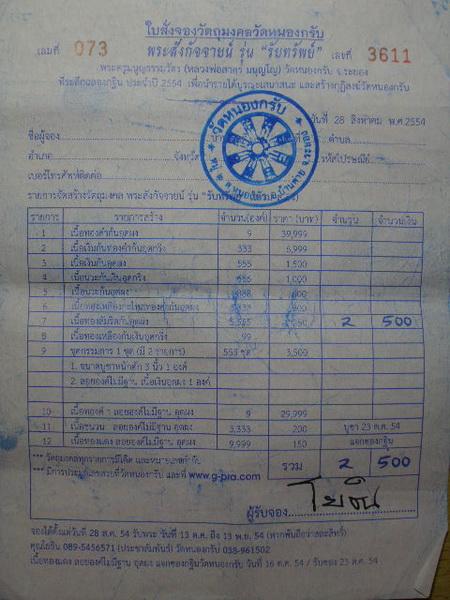 ใบสั่งจองวัตถุมงคลวัดหนองกรับ
เล่มที่ 073 พระสังกัจจายน์ รุ่น "รับทรัพย์" เลขที่ 3611
พระครูมนูญธรรมวัตร (หลวงพ่อสาคร มนุญโญ) วัดหนองกรับ จ.ระยอง
ที่ระลึกฉลองกฐิน ประจำปี 2554 เพื่อนำรายได้บูรณะเสนาสนะ และสร้างกุฏิสงฆ์วัดหนองกรับ
วันที่ 28 สิงหาคม พ.ศ.2554
ชื่อผู้จอง ตำบล
อำเภอ จังหวัด รหัสไปรษณีย์
เบอร์โทรศัพท์ติดต่อ
วัดหนองกรับ
รายการจัดสร้างวัตถุมงคล พระสังกัจจายน์ รุ่น
รายการ รายการสร้าง จำนวน(องค์) ราคา (บาท) จำนวน จำนวนเงิน
1 เนื้อทองคำก้นอุดผง 9 39,999
2 เนื้อเงินก้นทองคำก้นอุดกริ่ง 333 6,999
3 เนื้อเงินก้นอุดผง 555 1,500
4 เนื้อนวะก้นเงินอุดกริ่ง 1,000
5 เนื้อนวะก้นอุดผง 600
6 300
7 เนื้อทองสัมฤทธิ์ก้นอุดผง 2 500
8 เนื้อทองเหลืองก้นเงินอุดกริ่ง 99
9 ชุดกรรมการ 1 ชุด (มี 2 รายการ) 553 ชุด 3,500
1. ขนาดบูชาหน้าตัก 3 นิ้ว 1 องค์
2. ลอยองค์ไม่มีฐาน เนื้อเงินอุดผง 1 องค์
10 เนื้อทองคำ ลอยองค์ไม่มีฐาน อุดผง 9 29,999
11 เนื้อชนวน ลอยองค์ไม่มีฐาน อุดผง 3,333 200 บูชา 23 ต.ค. 54
12 เนื้อทองแดง ลอยองค์ไม่มีฐาน อุดผง 9,999 150 แจกของกฐิน
*** วัตถุมงคลทุกรายการมีโค๊ด และหมายเลขกำกับ รวม 2 500
www.g-pra.com
ผู้รับจอง โยธิน
จองได้ตั้งแต่วันที่ 28 ส.ค. 54 รับพระ วันที่ 13 ต.ค. ถึง 13 พ.ย. 54
คุณโยธิน 089-5456571 (ประชาสัมพันธ์) วัดหนองกรับ 038-961502
เนื้อทองแดง ลอยองค์ไม่มีฐาน อุดผง แจกของกฐินวัดหนองกรับ วันที่ 16 ต.ค. 54 / รับของ 23 ต.ค. 54